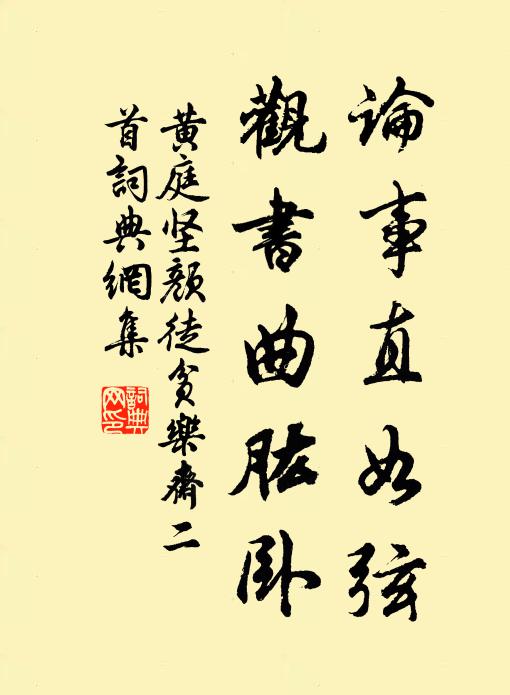 論事直如弦
觀書曲肱卧
黄庭坚顏徒貧樂齋二
首詞典網集
詞典
网印